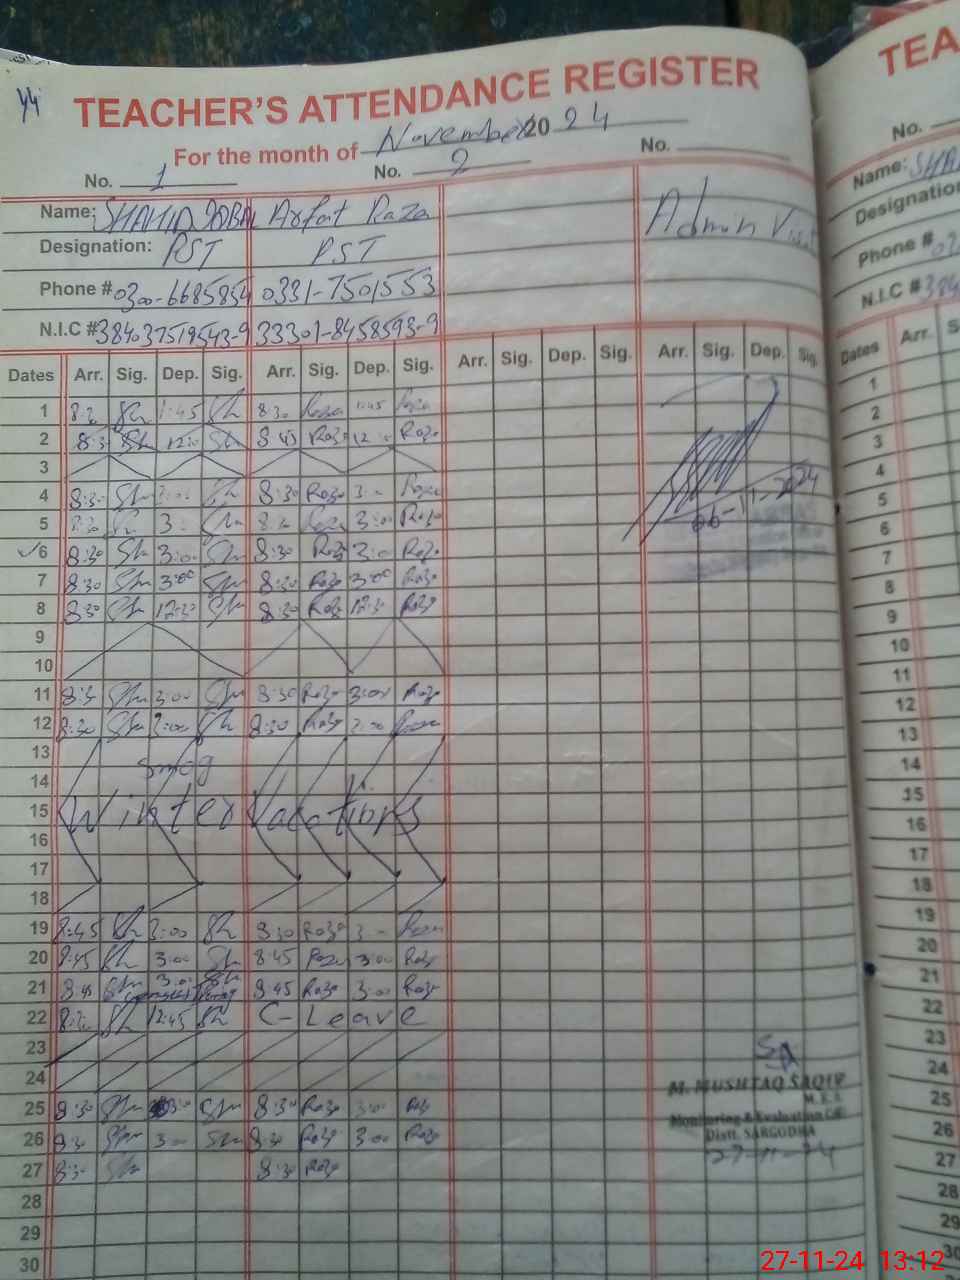 44
TEACHER'S ATTENDANCE REGISTER
For the month of November 2024
No. 1 No. 2 No.
Name: SHAHID IQBAL Arfat Raza Admin Visit
Designation: PST PST
Phone # 0300-6685854 0331-7501553
N.I.C # 38403-7519543-9 33301-8458593-9
Dates Arr. Sig. Dep. Sig. Arr. Sig. Dep. Sig. Arr. Sig. Dep. Sig. Arr. Sig. Dep. Sig.
1 8:30 Sh 1:45 Sh 8:30 Raza 1:45 Raza
2 8:30 Sh 12:30 Sh 8:45 Raza 12:30 Raza
3
4 8:30 Sh 3:00 Sh 8:30 Raza 3:00 Raza
5 8:30 Sh 3:00 Sh 8:30 Raza 3:00 Raza
06-11-2024
6 8:30 Sh 3:00 Sh 8:30 Raza 3:00 Raza
7 8:30 Sh 3:00 Sh 8:30 Raza 3:00 Raza
8 8:30 Sh 12:30 Sh 8:30 Raza 12:30 Raza
9
10
11 8:30 Sh 3:00 Sh 8:30 Raza 3:00 Raza
12 8:30 Sh 3:00 Sh 8:30 Raza 3:00 Raza
13
smog
14
15 Winter Vacations
16
17
18
19 8:45 Sh 3:00 Sh 8:30 Raza 3:00 Raza
20 8:45 Sh 3:00 Sh 8:45 Raza 3:00 Raza
21 8:45 Sh 3:00 Sh 8:45 Raza 3:00 Raza
22 8:30 Sh 12:45 Sh C-Leave
23
24
25 8:30 Sh 3:00 Sh 8:30 Raza 3:00 Raza
26 8:30 Sh 3:00 Sh 8:30 Raza 3:00 Raza
27 8:30 Sh 8:30 Raza
28
29
30
M. MUSHTAQ SAQIB
M.E.A
Monitoring & Evaluation
Distt. SARGODHA
27-11-24
TEA
No.
Name: SHA
Designation
Phone # 03
N.I.C # 384
Dates Arr. S
1
2
3
4
5
6
7
8
9
10
11
12
13
14
15
16
17
18
19
20
21
22
23
24
25
26
27
28
29
30
27-11-24 13:12